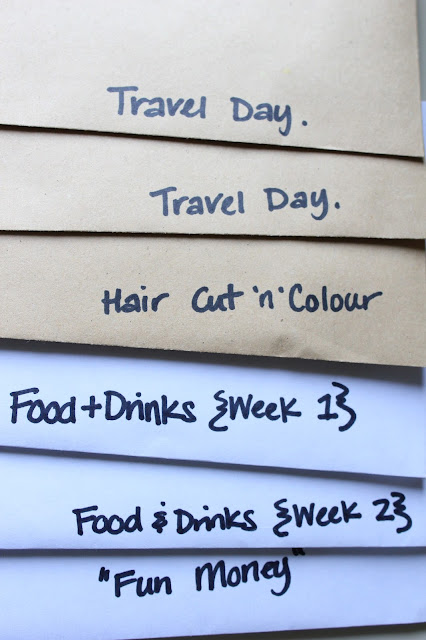 Travel Day.
Travel Day.
Hair Cut 'n' Colour
Food+Drinks {Week 1}
Food & Drinks {Week 2}
"Fun Money"